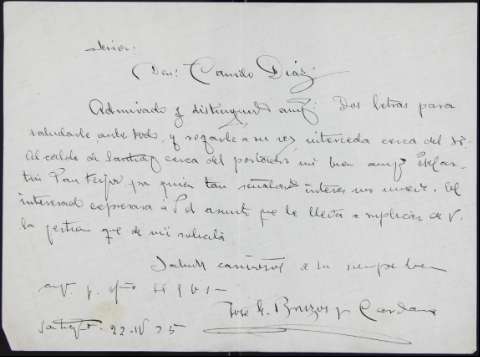 Señor:
Don: Camilo Díaz;
Admirado y distinguido amigº: Dos letras para
saludarle ante todo, y rogarle a su vez interceda cerca del Sr.
Alcalde de Santiago cerca del portador mi buen amigº
por quien tan señalado interés me mueve. El
interesado expresará a Vd asunto que le lleva a suplicar de V.
la gestión que de mí solicita
Saluda cariñoso a su siempre buen
José G. Cardama
Santiago. 22-IV 35